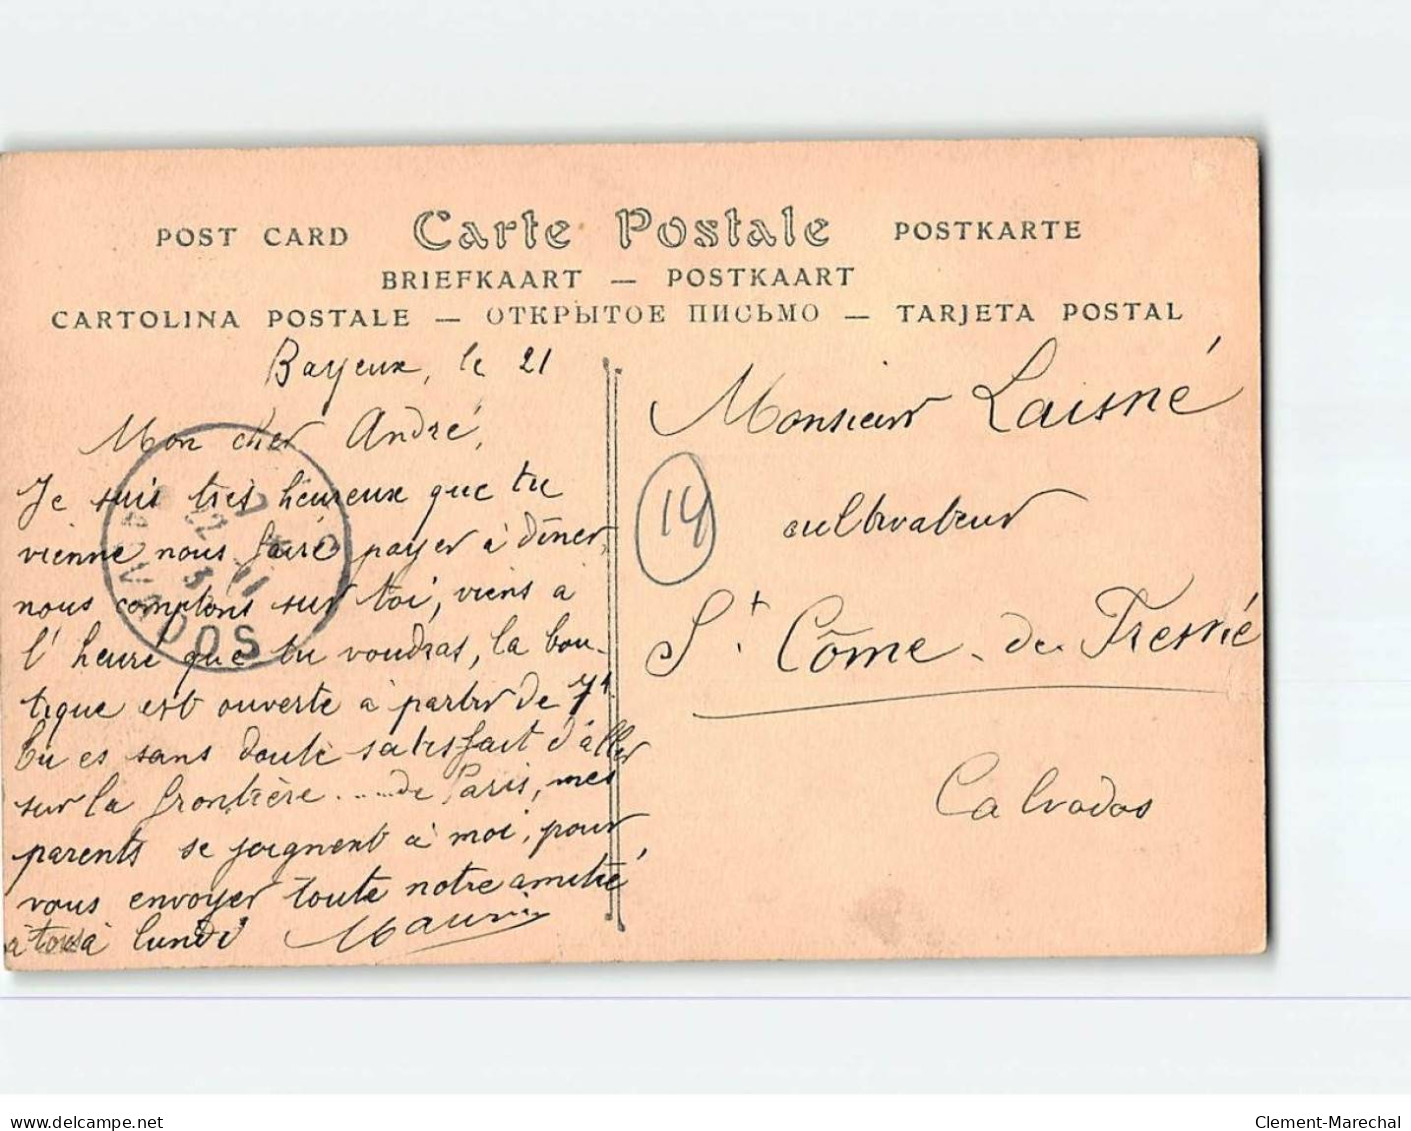 POST CARD Carte Postale POSTKARTE
BRIEFKAART — POSTKAART
CARTOLINA POSTALE — ОТКРЫТОЕ ПИСЬМО — TARJETA POSTAL
Bayeux, le 21
Mon cher André,
Je suis très heureux que tu
vienne nous faire payer à dîner,
nous comptons sur toi, viens à
l'heure que tu voudras, la bou-
tique est ouverte à partir de 7h
tu es sans doute satisfait d'aller
sur la frontière .... de Paris, mes
parents se joignent à moi, pour
vous envoyer toute notre amitié
à tous à lundi Maurice
CALVADOS
22
Monsieur Laisné
14
cultivateur
St. Côme de Fresné
Calvados
www.delcampe.net
Clement-Marechal